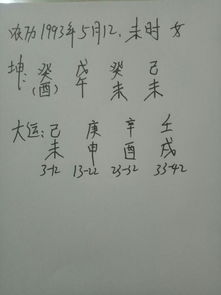 农历1993年5月12、未时 女
坤: 癸 戊 癸 己
(酉) 午 未 未
大运: 己 庚 辛 壬
未 申 酉 戌
3-12 13-22 23-32 33-42